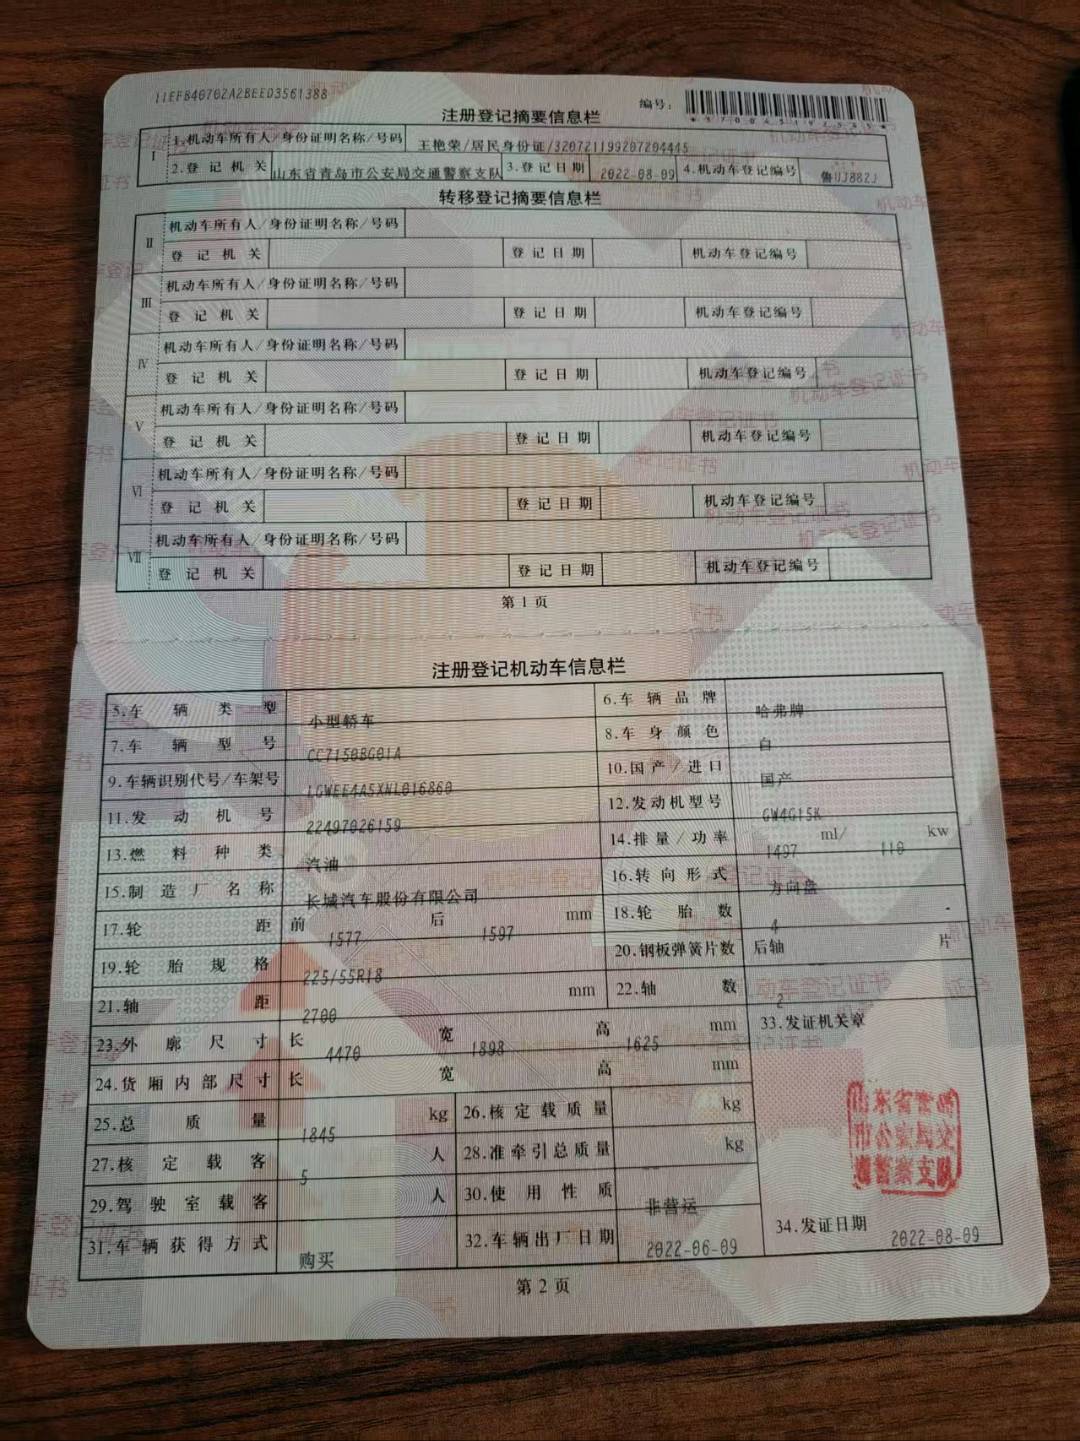 11EFB40702A2BEED3561388
编号:
注册登记摘要信息栏
I 1.机动车所有人/身份证明名称/号码 王艳荣/居民身份证/320721199207204445
2.登记机关 山东省青岛市公安局交通警察支队 3.登记日期 2022-08-09 4.机动车登记编号 鲁UJ882J
转移登记摘要信息栏
II 机动车所有人/身份证明名称/号码
登记机关 登记日期 机动车登记编号
III 机动车所有人/身份证明名称/号码
登记机关 登记日期 机动车登记编号
IV 机动车所有人/身份证明名称/号码
登记机关 登记日期 机动车登记编号
V 机动车所有人/身份证明名称/号码
登记机关 登记日期 机动车登记编号
VI 机动车所有人/身份证明名称/号码
登记机关 登记日期 机动车登记编号
VII 机动车所有人/身份证明名称/号码
登记机关 登记日期 机动车登记编号
第1页
注册登记机动车信息栏
5.车辆类型 小型轿车 6.车辆品牌 哈弗牌
7.车辆型号 CC7150BG01A 8.车身颜色 白
9.车辆识别代号/车架号 LGWEE4A5XNL016860 10.国产/进口 国产
11.发动机号 22497026159 12.发动机型号 GW4G15K
13.燃料种类 汽油 14.排量/功率 1497 ml/ 110 kw
15.制造厂名称 长城汽车股份有限公司 16.转向形式 方向盘
17.轮距 前 1577 后 1597 mm 18.轮胎数 4
19.轮胎规格 225/55R18 20.钢板弹簧片数 后轴 片
21.轴距 2700 mm 22.轴数 2
23.外廓尺寸 长 4470 宽 1898 高 1625 mm 33.发证机关章
24.货厢内部尺寸 长 宽 高 mm
25.总质量 1845 kg 26.核定载质量 kg
27.核定载客 5 人 28.准牵引总质量 -- kg
29.驾驶室载客 人 30.使用性质 非营运
31.车辆获得方式 购买 32.车辆出厂日期 2022-06-09 34.发证日期 2022-08-09
山东省青岛
市公安局交
通警察支队
第2页